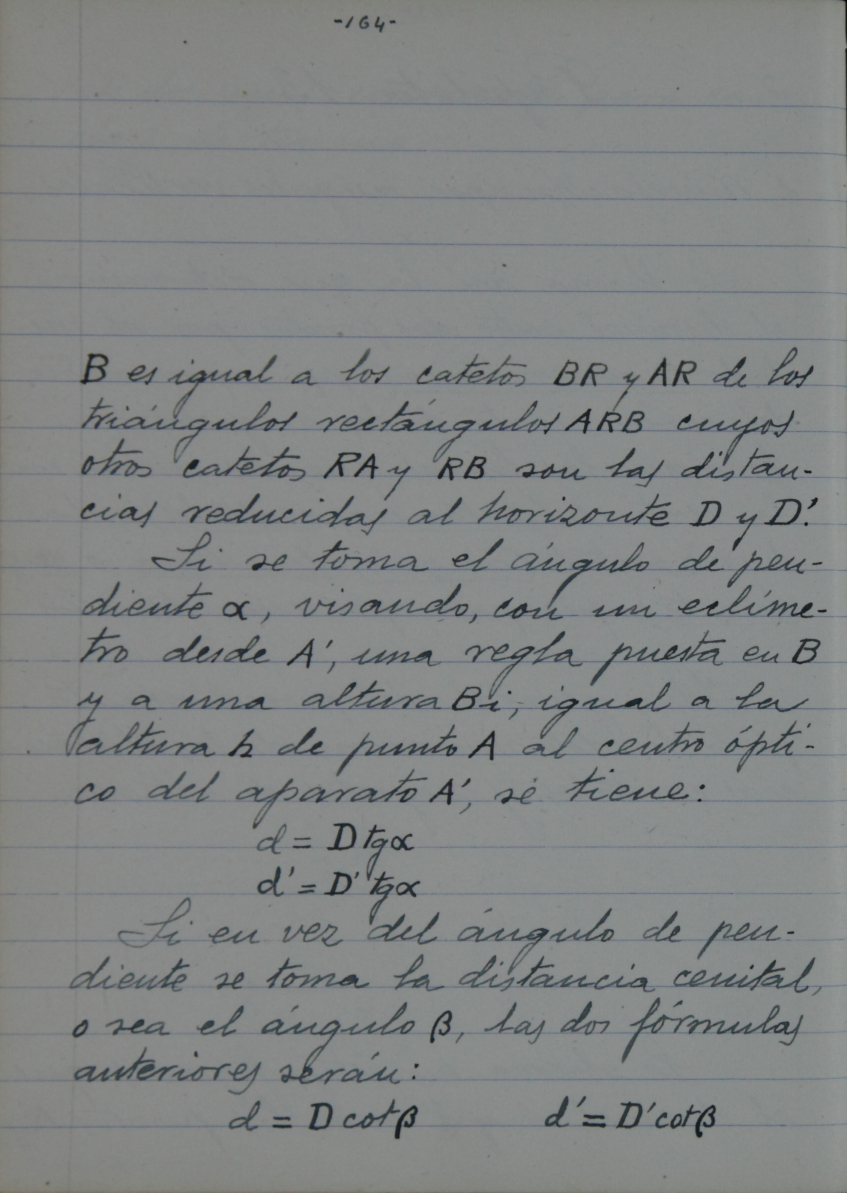 -164-
B es igual a los catetos BR y AR de los
triángulos rectángulos ARB cuyos
otros catetos RA y RB son las distan-
cias reducidas al horizonte D y D'.
Si se toma el ángulo de pen-
diente α, visando, con un eclíme-
tro desde A', una regla puesta en B
y a una altura Bi, igual a la
altura h de punto A al centro ópti-
co del aparato A', se tiene:
d = D tg α
d' = D' tg α
Si en vez del ángulo de pen-
diente se toma la distancia cenital,
o sea el ángulo β, las dos fórmulas
anteriores serán:
d = D cot β d' = D' cot β